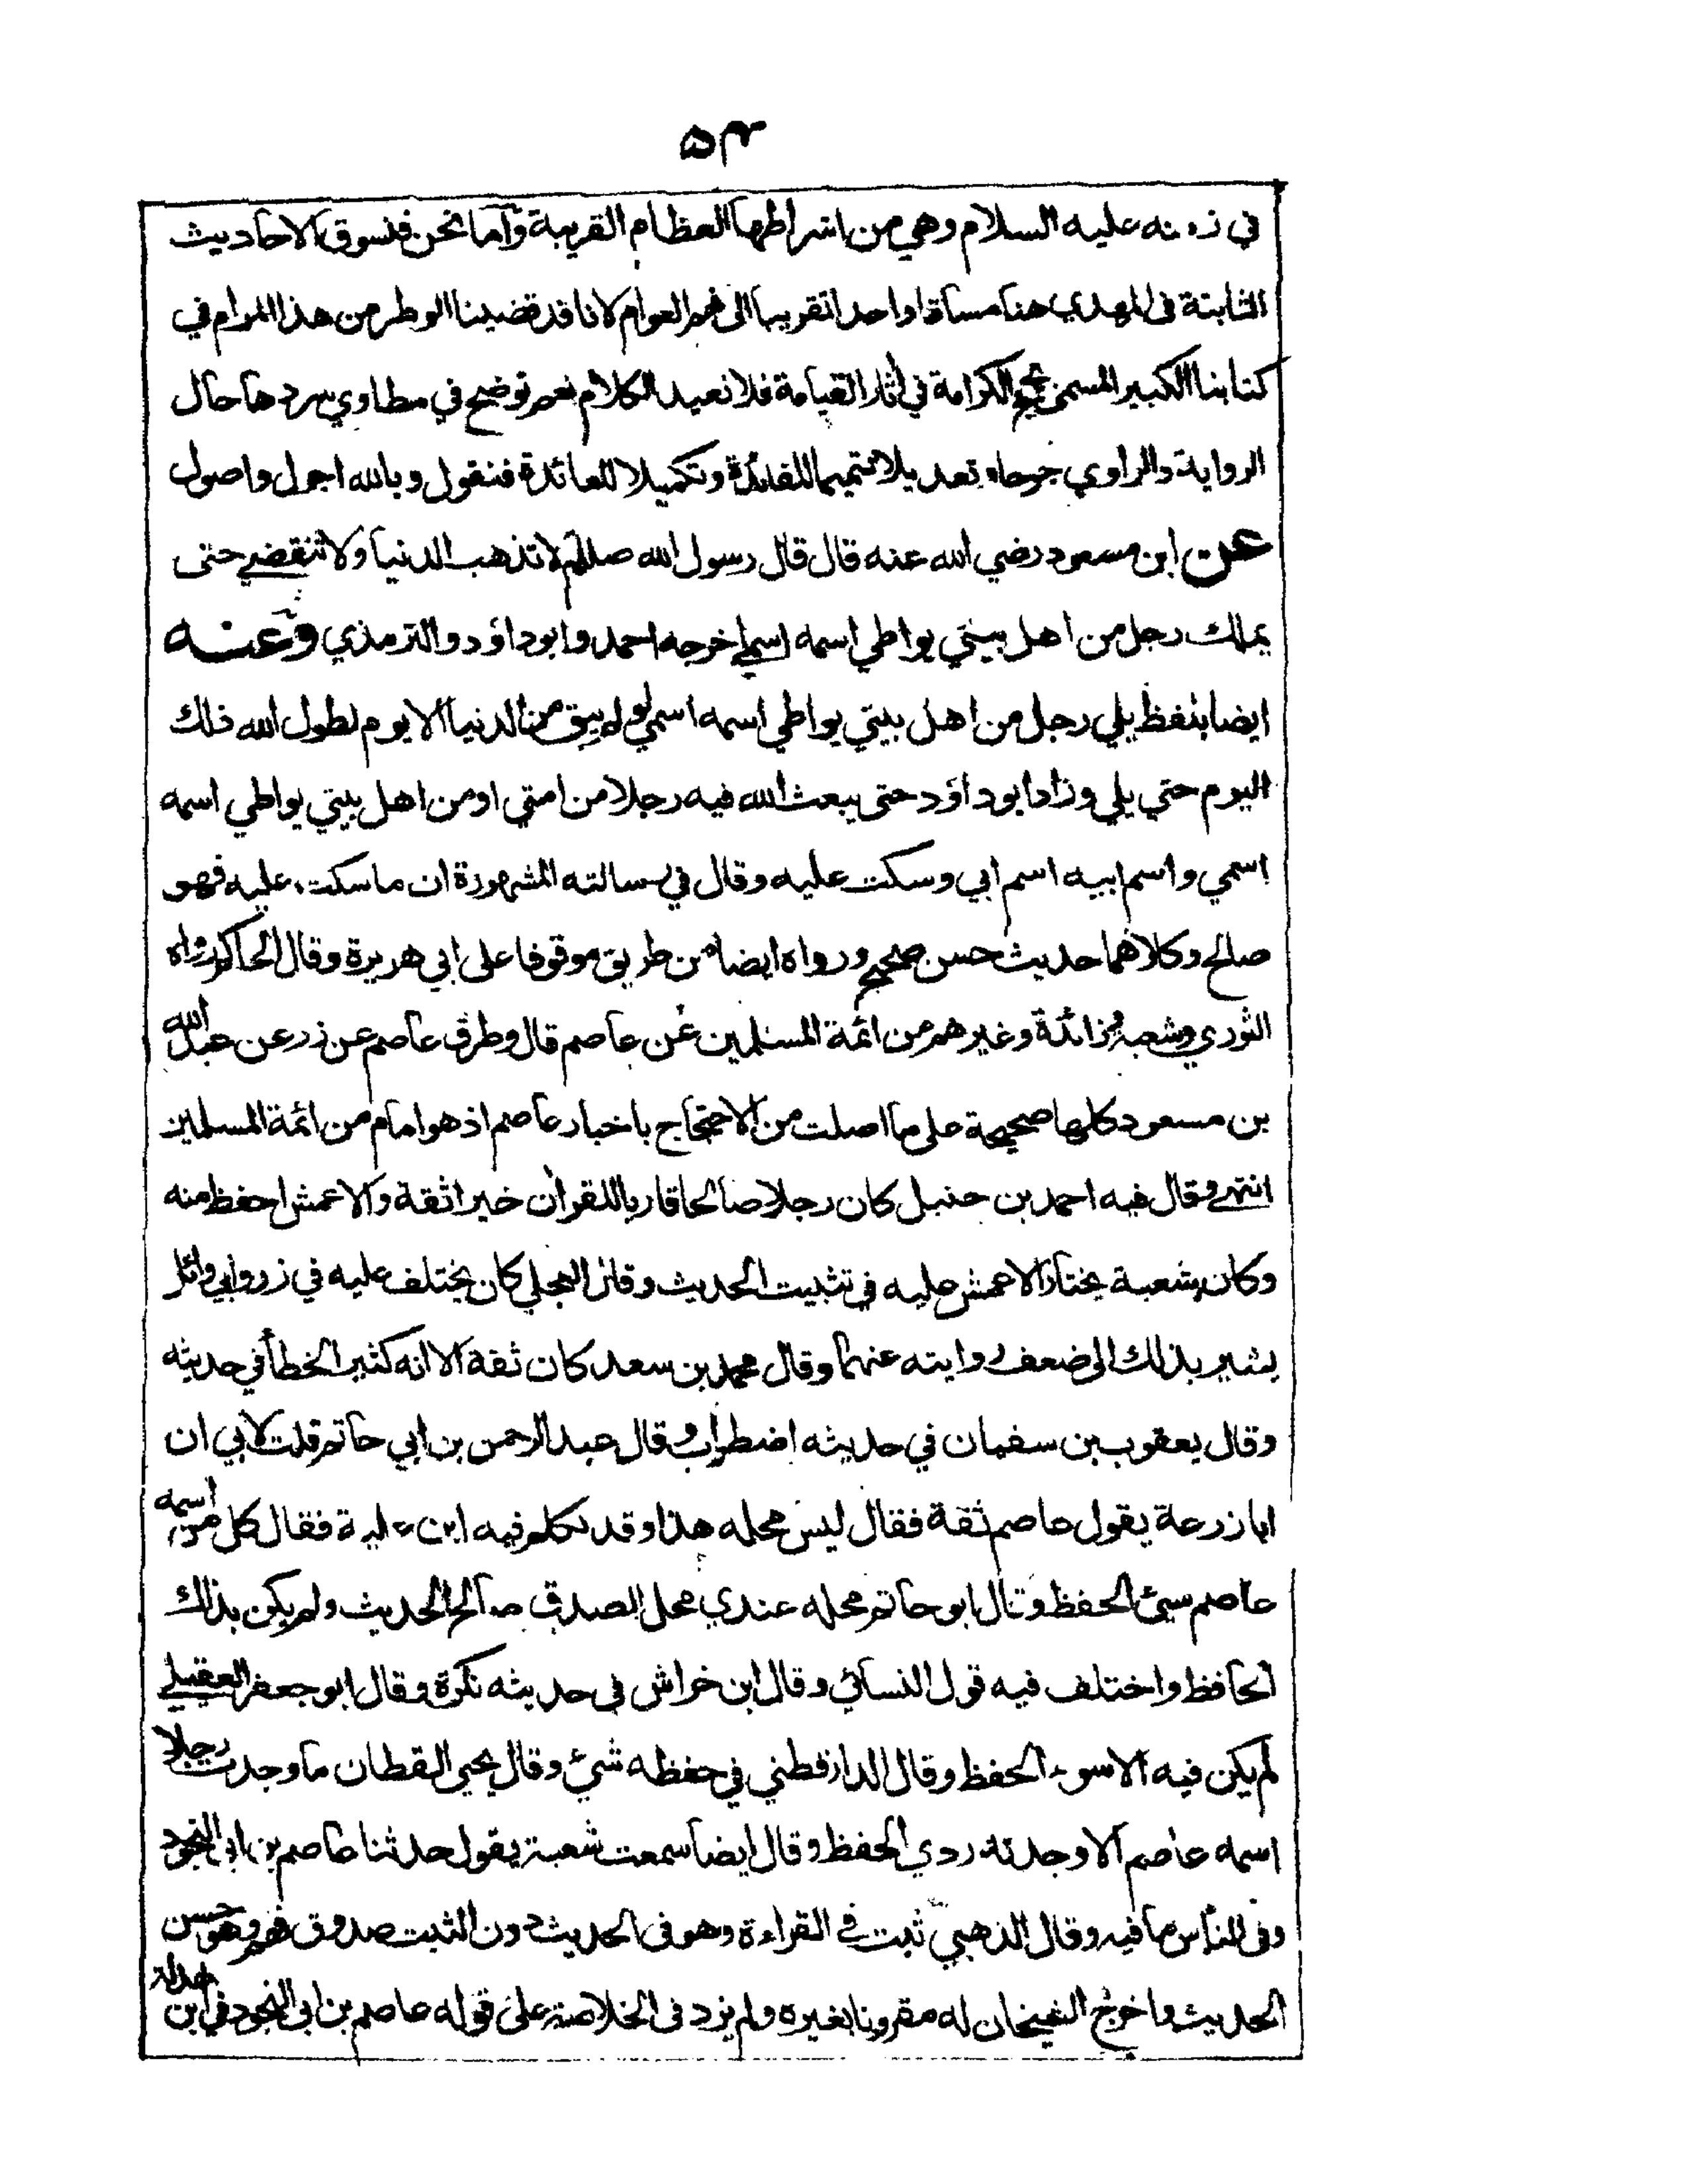 ٥٤
في زمنه عليه السلام وهي من اشراطها العظام القريبة وأما نحن فنسوق الاحاديث
الثابتة فى المهدي هنا مساقا واحدا تقريبا الى فهم العوام لانا قد قضينا الوطر من هذا المرام في
كتابنا الكبير المسمى بحجج الكرامة في اثار القيامة فلا نعيد الكلام نعم توضح في مطاوي سردها حال
الرواية والراوي جرحا وتعديلا تتميما للفائدة وتكميلا للعائدة فنقول وبالله اجول واصول
عن ابن مسعود رضي الله عنه قال قال رسول الله صللم لا تذهب الدنيا ولا تنقضي حتى
يملك رجل من اهل بيتي يواطي اسمه اسمي اخرجه احمد وابوداؤد والترمذي وعنه
ايضا بلفظ يلي رجل من اهل بيتي يواطي اسمه اسمي لو لم يبق من الدنيا الا يوم لطول الله ذلك
اليوم حتي يلي وزاد ابوداؤد حتى يبعث الله فيه رجلا من امتي او من اهل بيتي يواطي اسمه
اسمي واسم ابيه اسم ابي وسكت عليه وقال في رسالته المشهورة ان ما سكت عليه فهو
صالح وكلاهما حديث حسن صحيح ورواه ايضا من طريق موقوفا على ابي هريرة وقال الحاكم رواه
الثوري وشعبة وزائدة وغيرهم من ائمة المسلمين عن عاصم قال وطرق عاصم عن زر عن عبد الله
بن مسعود كلها صحيحة على ما اصلت من الاحتجاج باخبار عاصم اذ هو امام من ائمة المسلمين
انتهى وقال فيه احمد بن حنبل كان رجلا صالحا قاريا للقران خيرا ثقة والاعمش احفظ منه
وكان شعبة يختار الاعمش عليه في تثبيت الحديث وقال العجلي كان يختلف عليه في زر وابي وائل
يشير بذلك الى ضعف روايته عنهما وقال محمد بن سعد كان ثقة الا انه كثير الخطأ في حديثه
وقال يعقوب بن سفيان في حديثه اضطراب وقال عبد الرحمن بن ابي حاتم قلت لابي ان
ابا زرعة يقول عاصم ثقة فقال ليس محله هذا وقد تكلم فيه ابن علية فقال كل من اسمه
عاصم سيئ الحفظ وقال ابو حاتم محله عندي محل الصدق صالح الحديث ولم يكن بذلك
الحافظ واختلف فيه قول النسائي وقال ابن خراش في حديثه نكرة وقال ابو جعفر العقيلي
لم يكن فيه الا سوء الحفظ وقال الدارقطني في حفظه شيئ وقال يحيى القطان ما وجدت رجلا
اسمه عاصم الا وجدته ردي الحفظ وقال ايضا سمعت شعبة يقول حدثنا عاصم بن ابي النجود
وفى الناس ما فيه وقال الذهبي ثبت في القراءة وهو فى الحديث دون الثبت صدوق فهم وهو حسن
الحديث واخرج الشيخان له مقرونا بغيره ولم يزد فى الخلاصة على قوله عاصم بن ابى النجود في ابن بهدلة